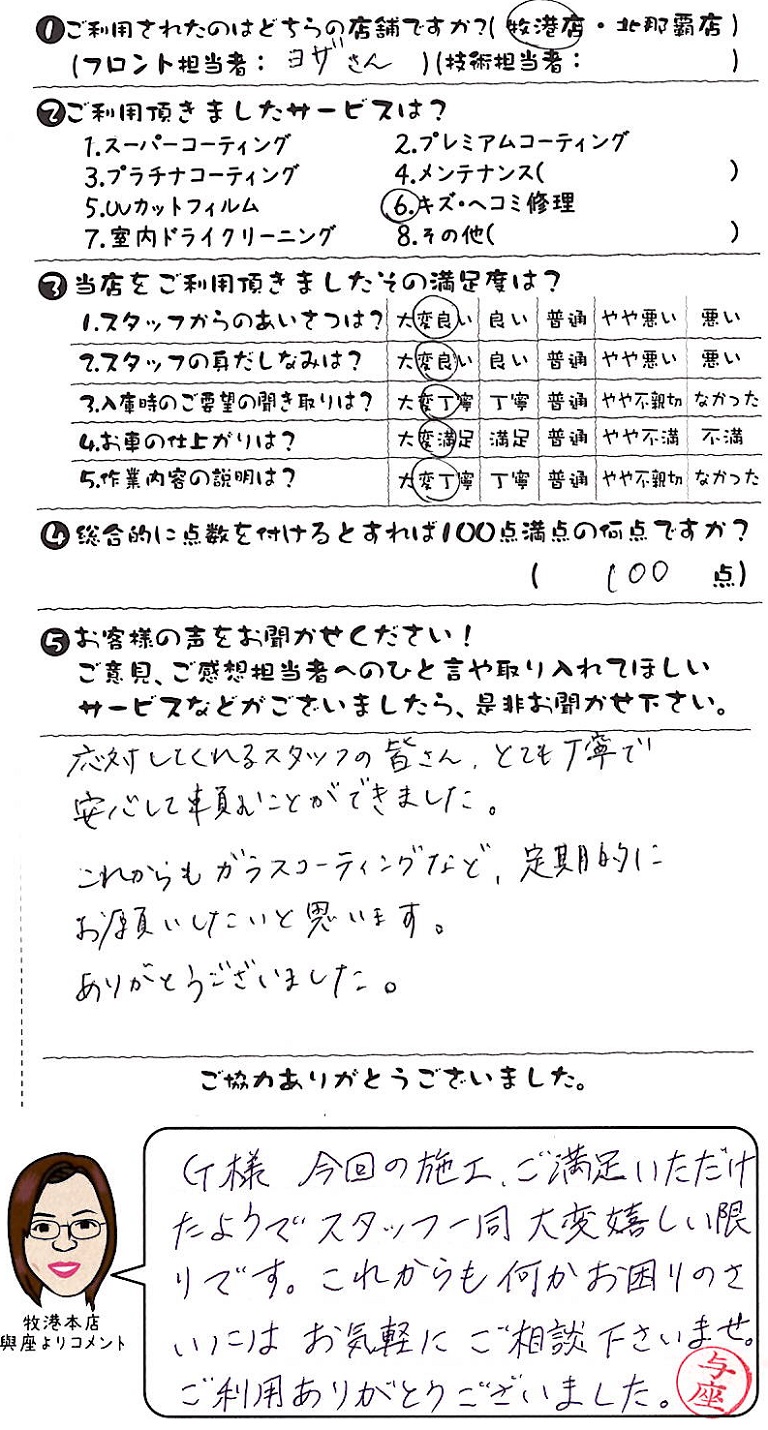 ❶ご利用されたのはどちらの店舗ですか?(牧港店・北那覇店)
(フロント担当者:ヨザさん)(技術担当者: )
❷ご利用頂きましたサービスは?
1.スーパーコーティング 2.プレミアムコーティング
3.プラチナコーティング 4.メンテナンス( )
5.UVカットフィルム 6.キズ・ヘコミ修理
7.室内ドライクリーニング 8.その他( )
❸当店をご利用頂きましたその満足度は?
1.スタッフからのあいさつは? 大変良い 良い 普通 やや悪い 悪い
2.スタッフの身だしなみは? 大変良い 良い 普通 やや悪い 悪い
3.入庫時のご要望の聞き取りは? 大変丁寧 丁寧 普通 やや不親切 なかった
4.お車の仕上がりは? 大変満足 満足 普通 やや不満 不満
5.作業内容の説明は? 大変丁寧 丁寧 普通 やや不親切 なかった
❹総合的に点数を付けるとすれば100点満点の何点ですか?
( 100 点)
❺お客様の声をお聞かせください!
ご意見、ご感想担当者へのひと言や取り入れてほしい
サービスなどがございましたら、是非お聞かせ下さい。
応対してくれるスタッフの皆さん、とても丁寧で
安心して頼むことができました。
これからもガラスコーティングなど、定期的に
お願いしたいと思います。
ありがとうございました。
ご協力ありがとうございました。
G様 今回の施工、ご満足いただけ
たようでスタッフ一同大変嬉しい限
りです。これからも何かお困りのさ
いにはお気軽にご相談下さいませ。
ご利用ありがとうございました。
与座
牧港本店
與座よりコメント